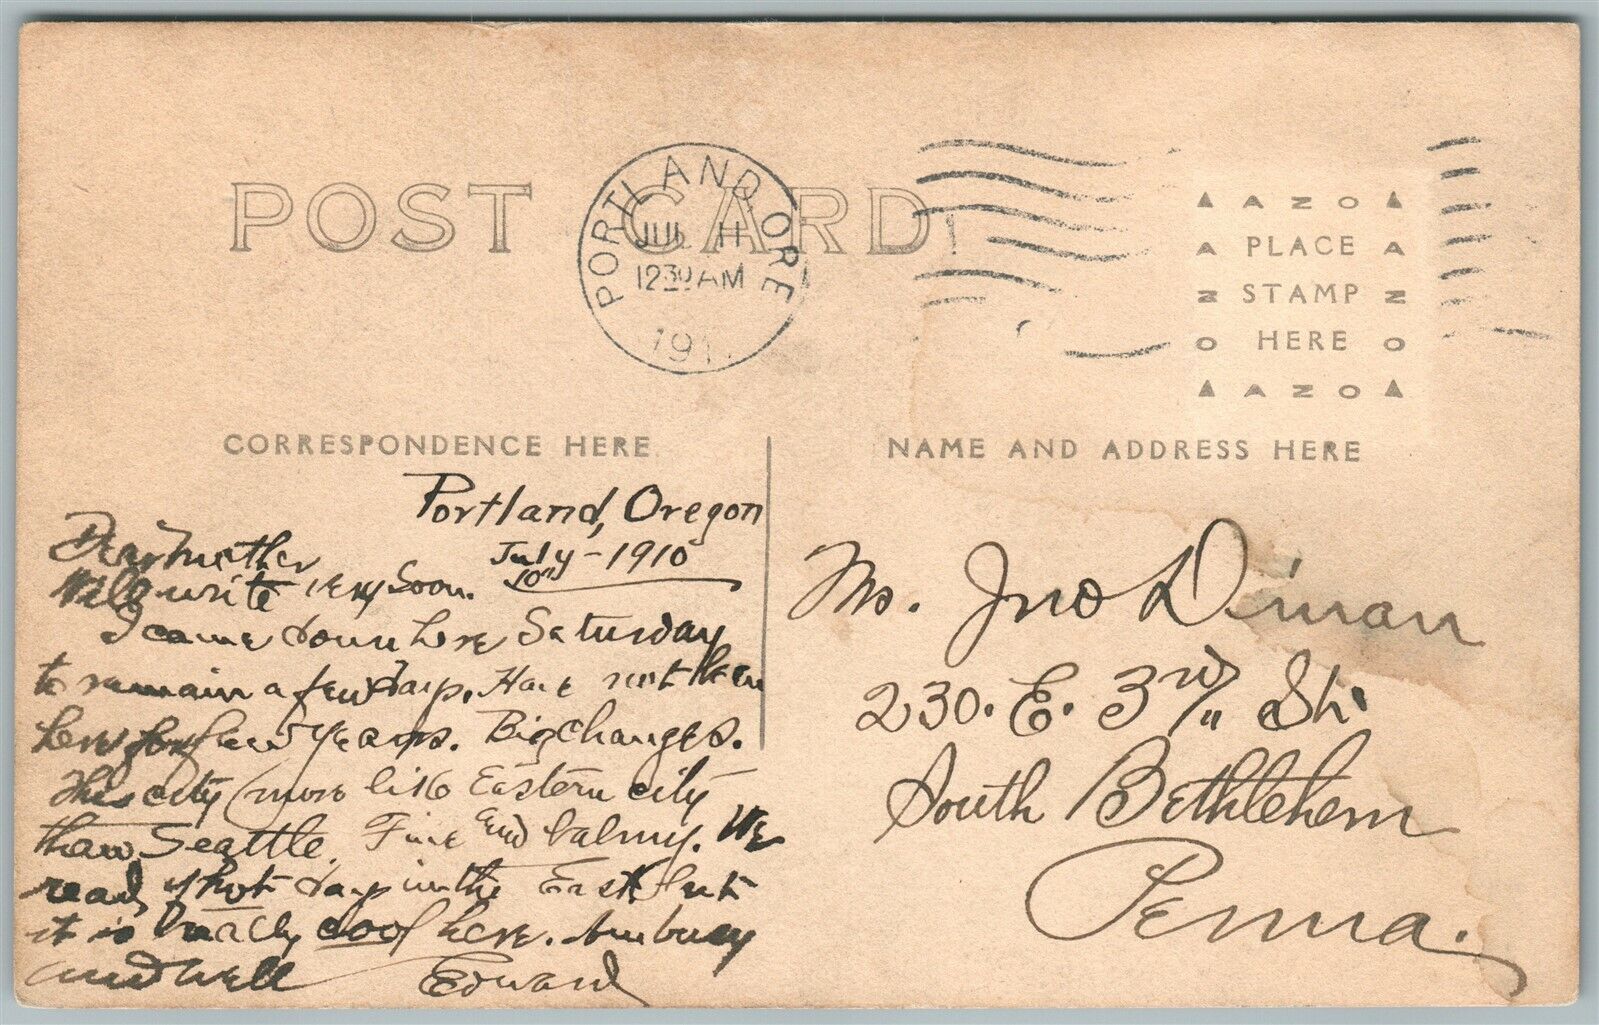 POST CARD
PORTLAND, ORE
JUL 11
1230 AM
191
AZO
PLACE
STAMP
HERE
AZO
CORRESPONDENCE HERE
NAME AND ADDRESS HERE
Portland, Oregon
July - 1910
10th
Dear Mother
Will write very soon.
I came down here Saturday
to remain a few days. Have not been
here for few years. Big changes.
This city more like Eastern city
than Seattle. Fine and balmy. We
read of hot days in the East but
it is nicely cool here. Am busy
and well Edward
Mrs. Jno Diman
230. E. 3rd St.
South Bethlehem
Penna.